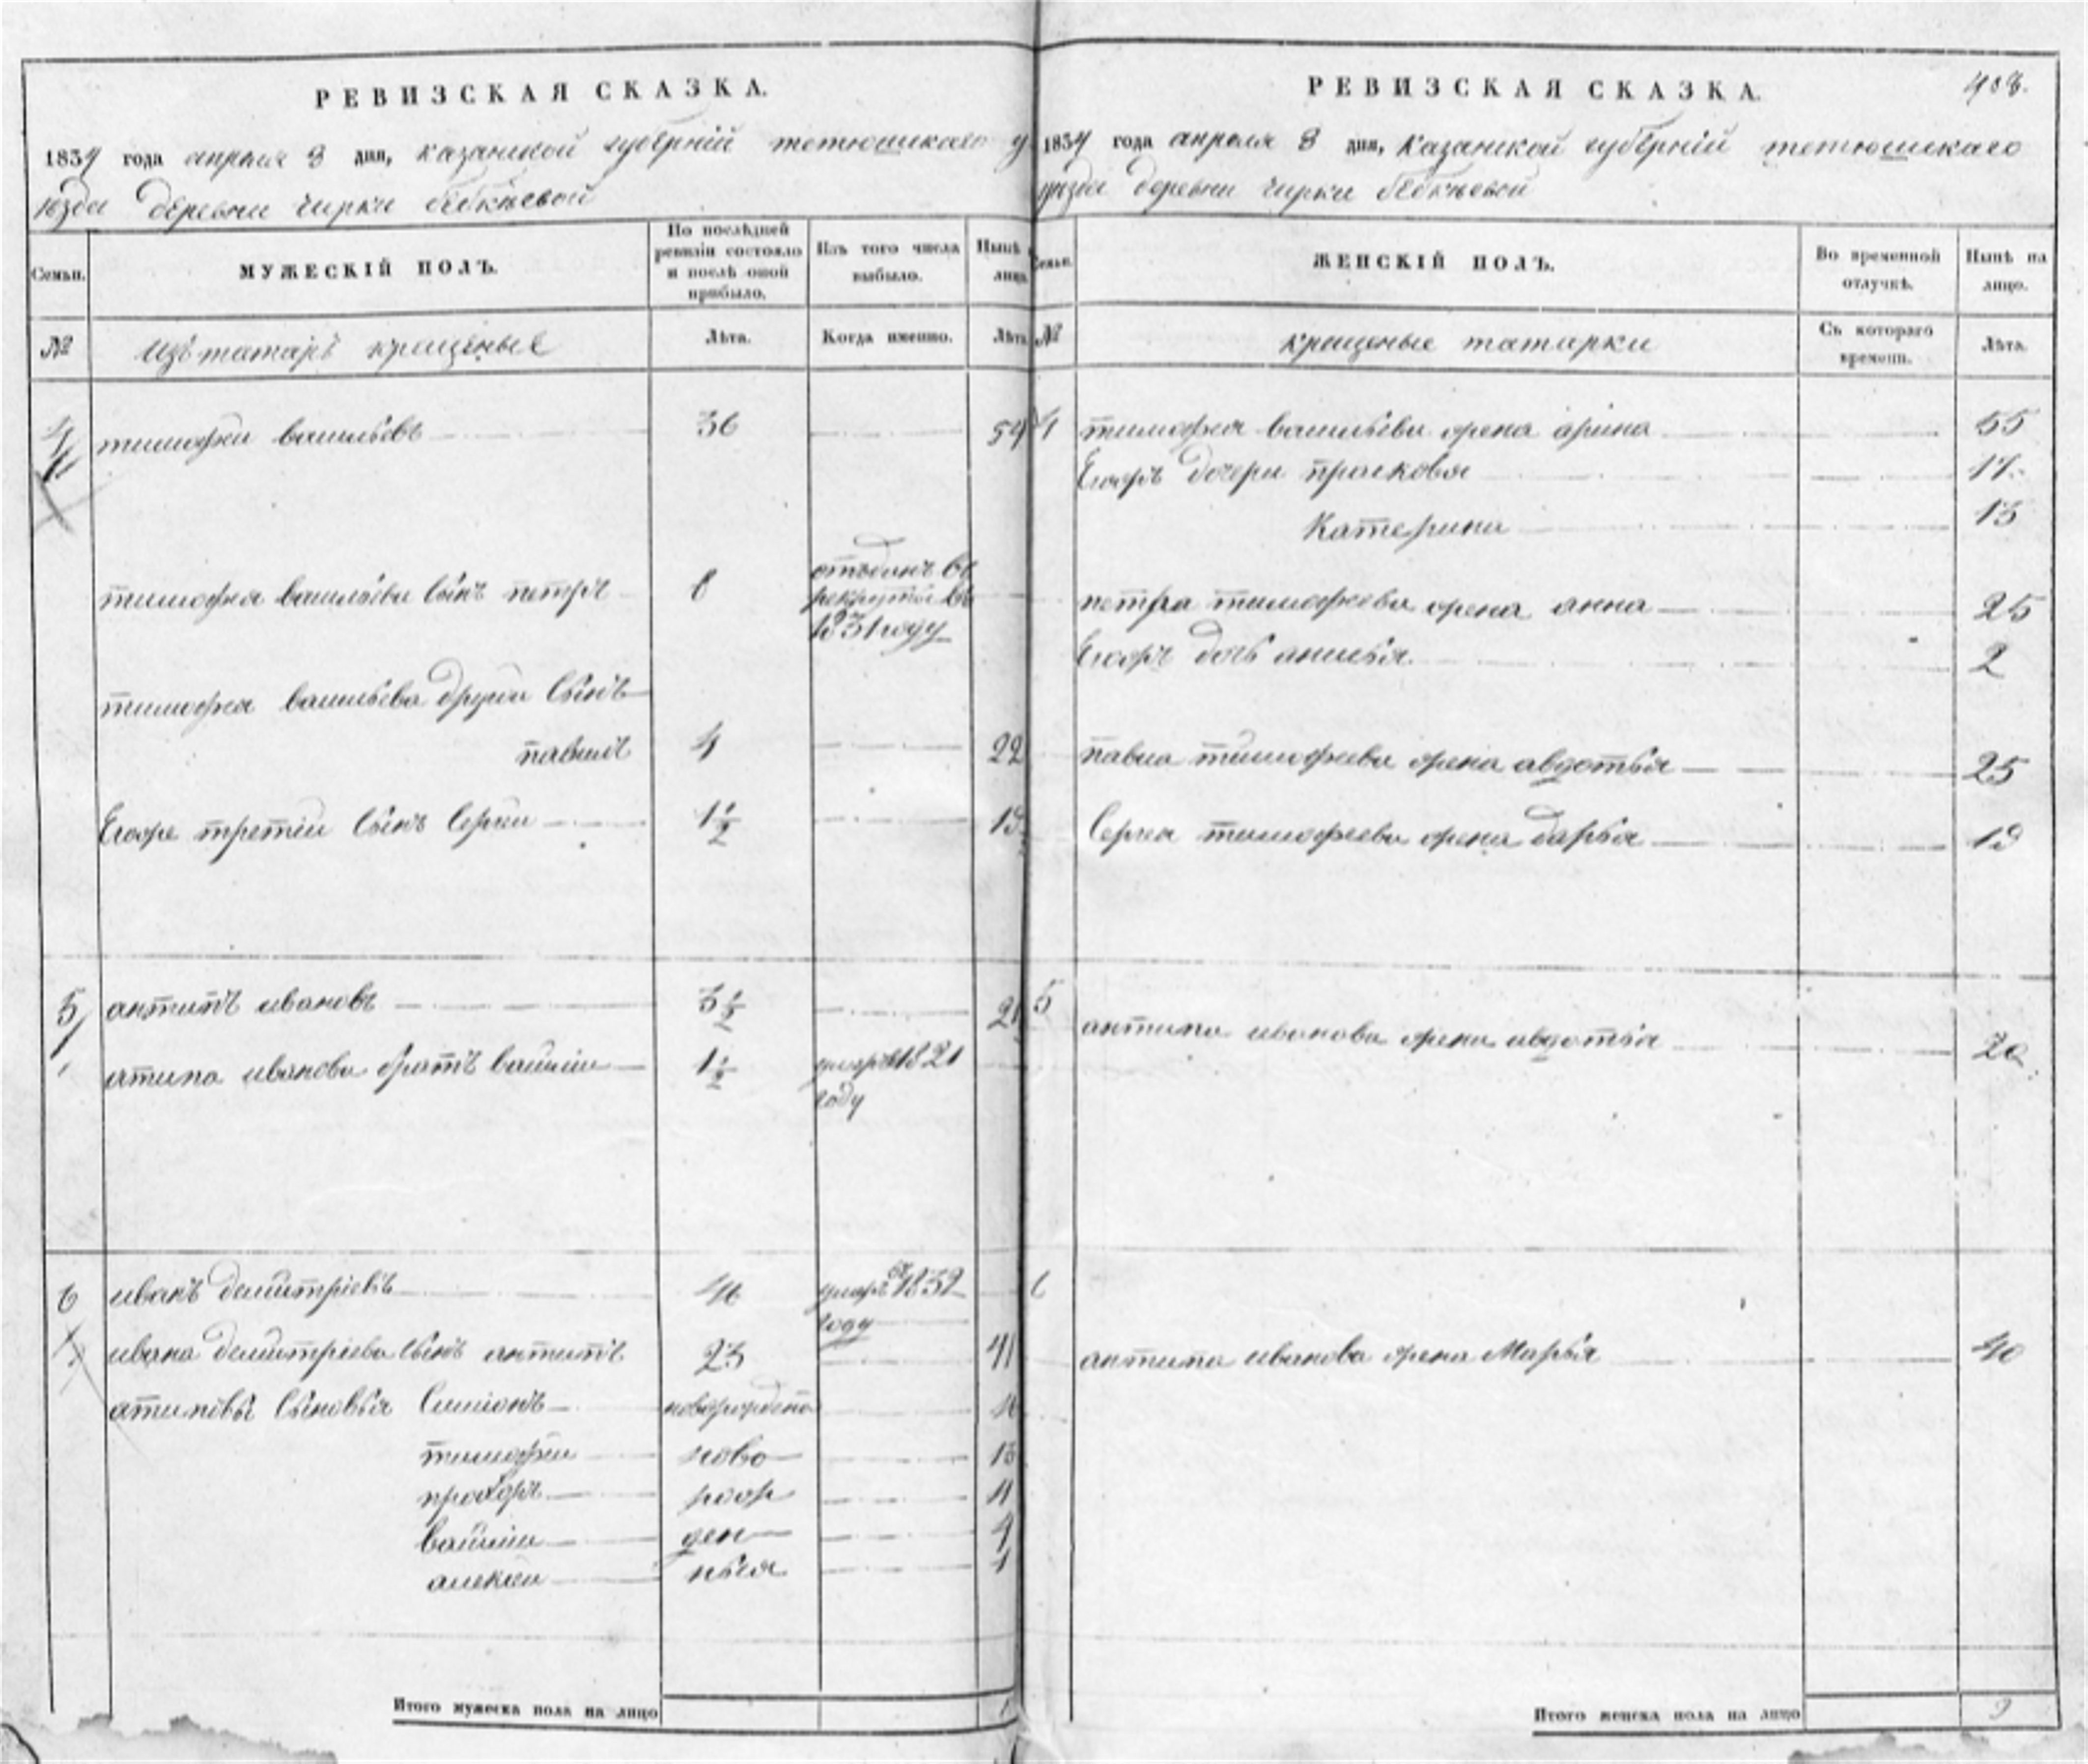 РЕВИЗСКАЯ СКАЗКА.
1834 года апреля 3 дня, казанской губернiи тетюшскаго у
ѣзда деревни чирки бебкѣевой
Семьи. МУЖЕСКIЙ ПОЛЪ. По послѣдней ревизiи состояло и послѣ оной прибыло. Изъ того числа выбыло. Нынѣ лицо
№ Изъ татаръ крещеные Лѣта. Когда именно. Лѣта
4 тимофеи васильевъ 36 54
тимофея васильева сынъ петръ 8 отъданъ въ
рекруты въ
1831 году
тимофея васильева другои сынъ
павилъ 4 22
Егоже третiи сынъ Сергеи 1½ 19
5 антипъ ивановъ 3½ 21
атипа иванова братъ василiи 1½ умеръ 1821
году
6 иванъ демитрiевъ 46 умеръ въ 1832
году
ивана демитрiева сынъ антипъ 23 41
атиповы сыновья Симионъ новорождено 16
тимофеи ново 13
прохоръ рож 11
василiи ден 4
алексеи ныя 1
Итого мужеска пола на лицо
РЕВИЗСКАЯ СКАЗКА. 408.
1834 года апреля 3 дня, Казанской губернiи тетюшскаго
уѣзда деревни чирки бебкѣевой
Семьи. ЖЕНСКIЙ ПОЛЪ. Во временной отлучкѣ. Нынѣ на лицо.
№ крещеные татарки Съ котораго времени. Лѣта.
4 тимофея васильева жена арина 55
Егожъ дочери прасковя 17
Катерина 13
петра тимофеева жена анна 25
Егожъ дочь анисья 2
павла тимофеева жена авдотья 25
Сергея тимофеева жена дарья 19
5
антипа иванова жена авдотья 20
6
антипа иванова жена Марья 40
Итого женска пола на лицо 9